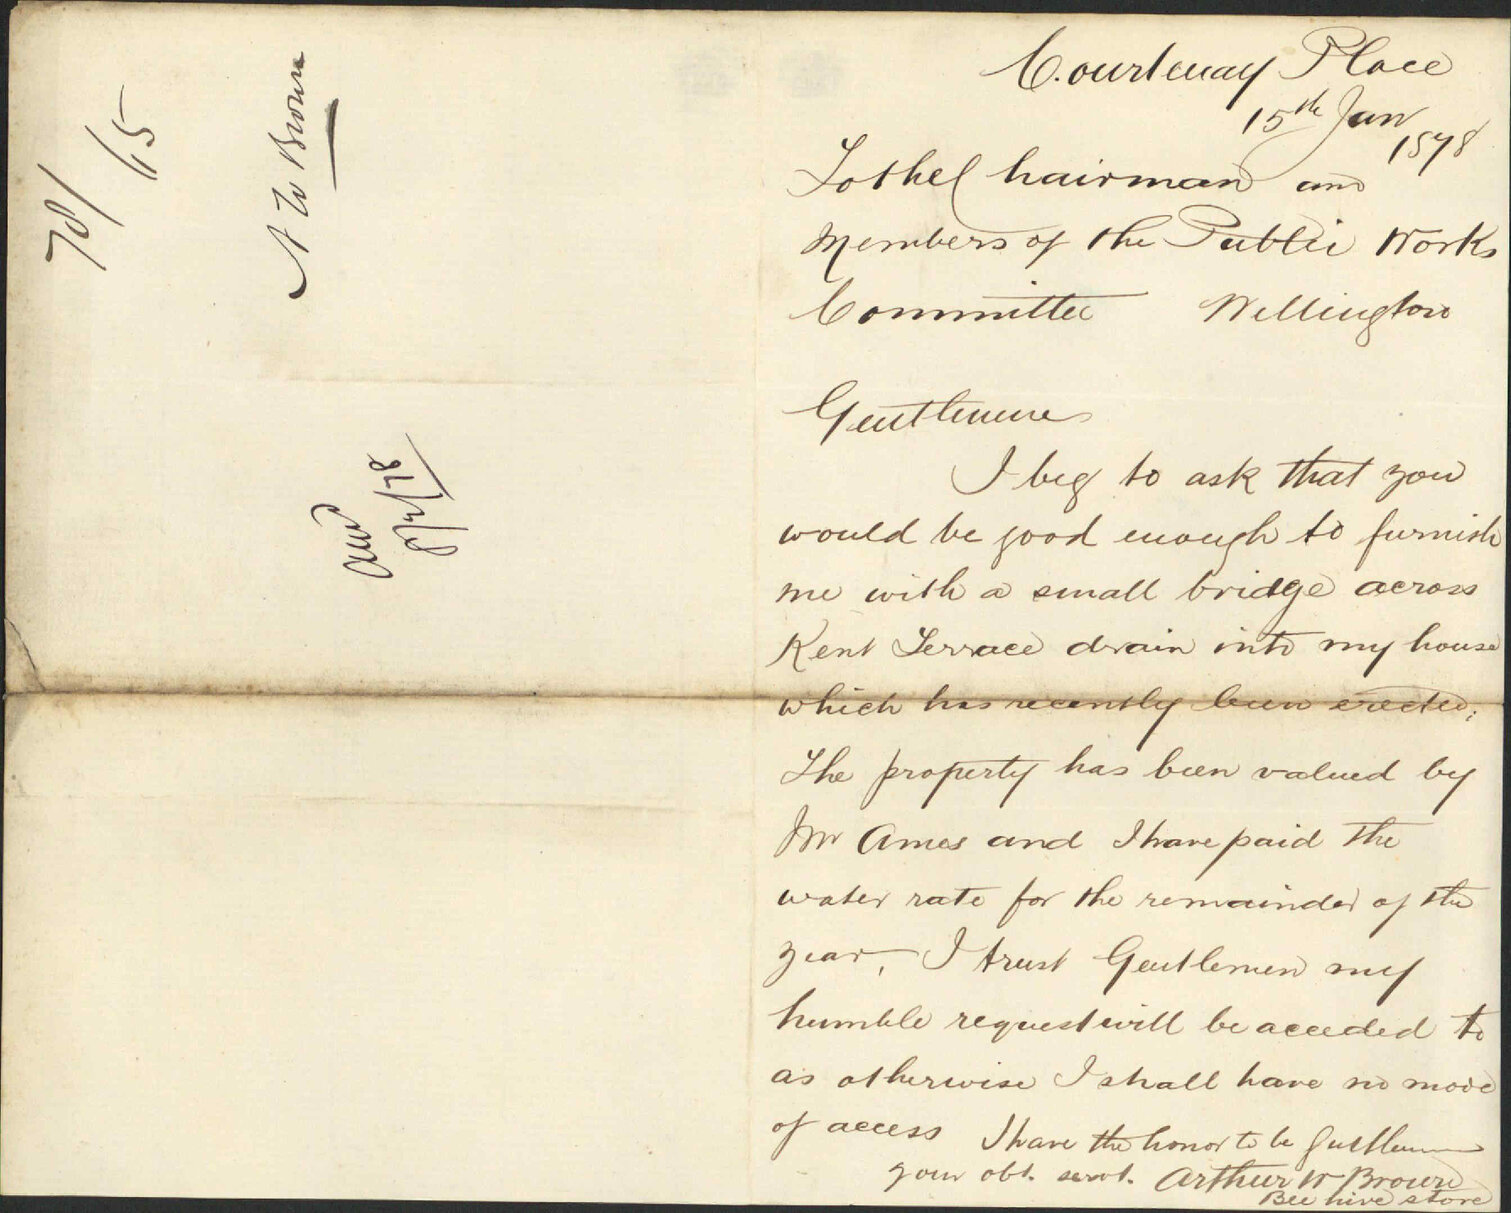 78/115
A W Brown
Ansd
8/2/78
Courtenay Place
15th Jany
1878
To the Chairman and
Members of the Public Works
Committee Wellington
Gentlemen
I beg to ask that you
would be good enough to furnish
me with a small bridge across
Kent Terrace drain into my house
which has recently been erected;
The property has been valued by
Mr Ames and I have paid the
water rate for the remainder of the
year, I trust Gentlemen my
humble request will be acceded to
as otherwise I shall have no mode
of access I have the honor to be Gentlemen
your obt. servt. Arthur W Brown
Bee hive store